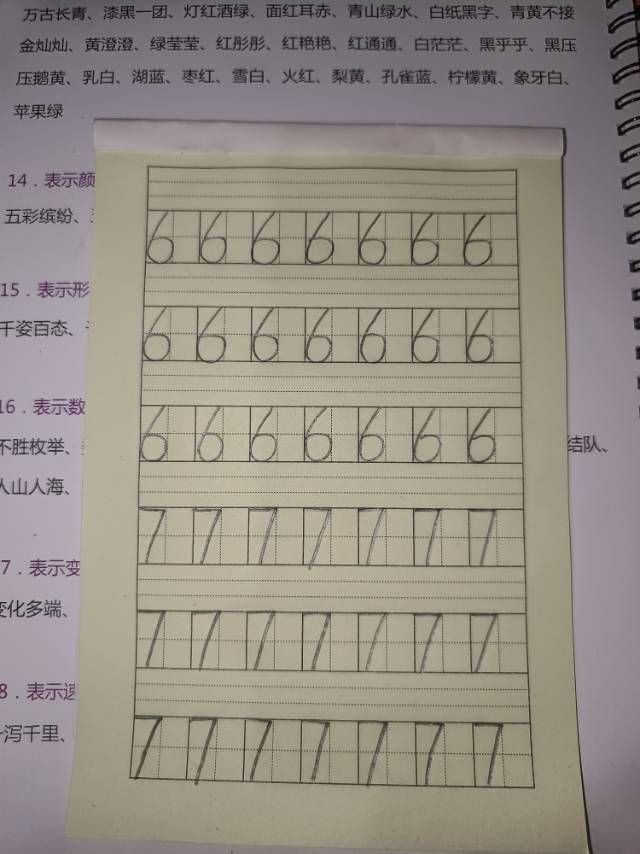 万古长青、漆黑一团、灯红酒绿、面红耳赤、青山绿水、白纸黑字、青黄不接
金灿灿、黄澄澄、绿莹莹、红彤彤、红艳艳、红通通、白茫茫、黑乎乎、黑压
压鹅黄、乳白、湖蓝、枣红、雪白、火红、梨黄、孔雀蓝、柠檬黄、象牙白、
苹果绿
14．表示颜
五彩缤纷、
15．表示形
千姿百态、
16．表示数
不胜枚举、
结队、
人山人海、
7．表示变
变化多端、
8．表示速
一泻千里、
6 6 6 6 6 6 6
6 6 6 6 6 6 6
6 6 6 6 6 6 6
7 7 7 7 7 7 7
7 7 7 7 7 7 7
7 7 7 7 7 7 7